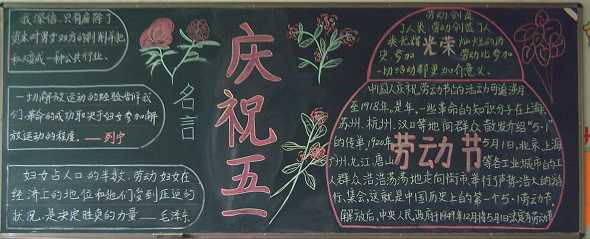 我深信,只有废除了
资本对男女双方的剥削并把
私人变成一种公共行业.
一切解放运动的经验皆听我
们,革命的成功取决于妇女参加解
放运动的程度. ——列宁
妇女占人口的半数,劳动妇女在
经济上的地位和她们受到压迫的
状况,是决定胜负的力量——毛泽东
名言
庆祝五一
劳动创造
了人类,劳动创造了人
光荣
史.参加 劳动比参加
一切活动都更加有意义.
中国人庆祝劳动节的活动可追溯
至1918年.是年,一些革命的知识分子在上海、
苏州、杭州、汉口等地向群众散发介绍“5·1”
的传单.1920年 5月1日,北京、上海
劳动节
广州、九江、唐山 等各工业城市的工
人群众浩浩荡荡地走向街市,举行了声势浩大的游
行、集会,这就是中国历史上的第一个5·1劳动节.
解放后,中央人民政府于1949年12月将5月1日法定为劳动节